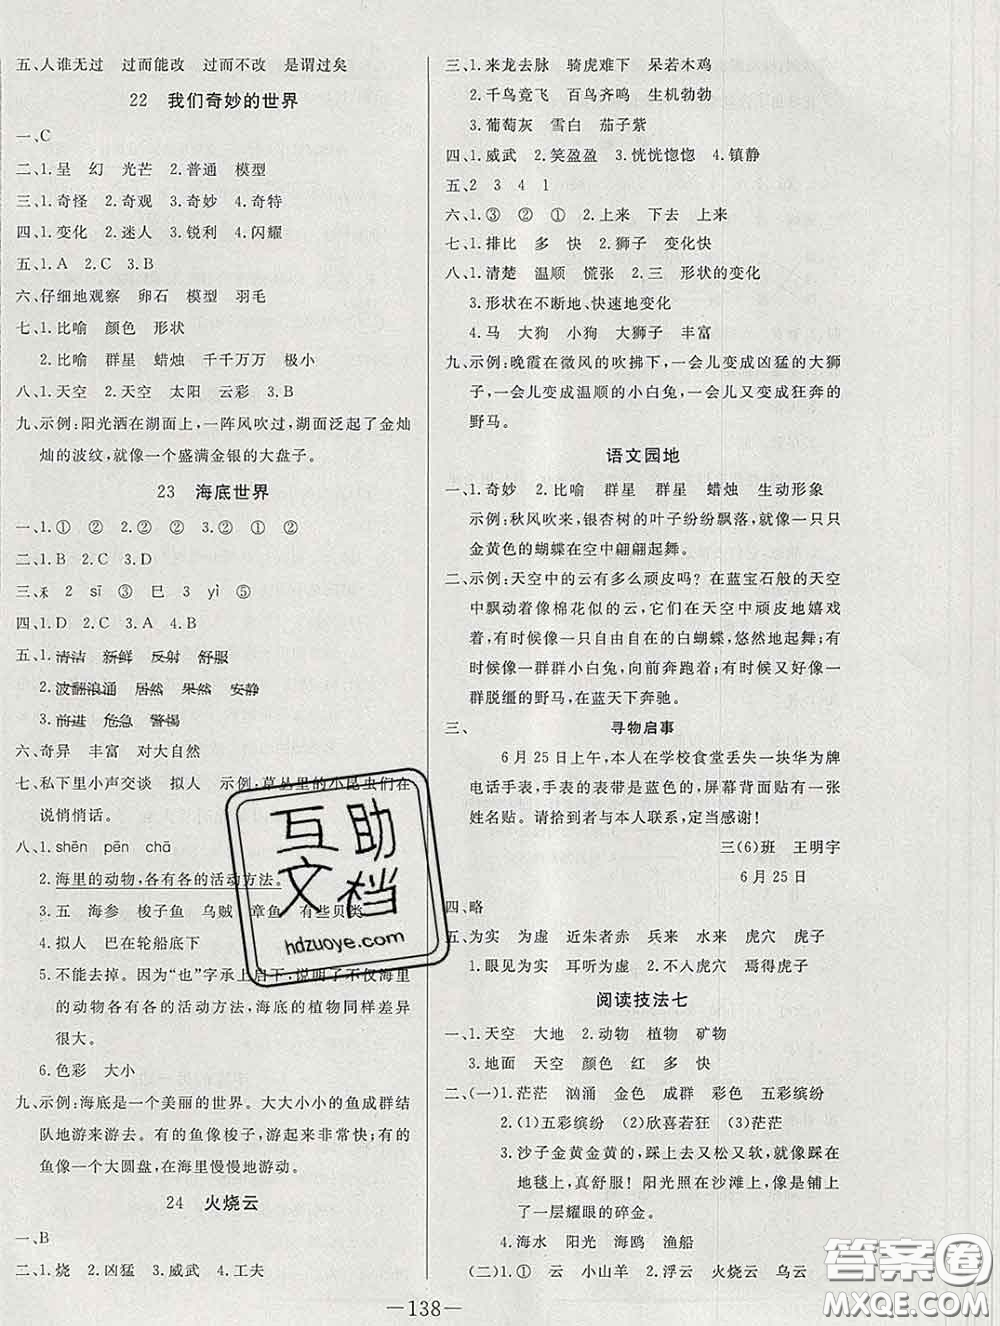 五、人谁无过　过而能改　过而不改　是谓过矣
22　我们奇妙的世界
一、C
二、1.呈　幻　光芒　2.普通　模型
三、1.奇怪　2.奇观　3.奇妙　4.奇特
四、1.变化　2.迷人　3.锐利　4.闪耀
五、1.A　2.C　3.B
六、仔细地观察　卵石　模型　羽毛
七、1.比喻　颜色　形状
2.比喻　群星　蜡烛　千千万万　极小
八、1.天空　2.天空　太阳　云彩　3.B
九、示例:阳光洒在湖面上,一阵风吹过,湖面泛起了金灿
灿的波纹,就像一个盛满金银的大盘子。
23　海底世界
一、1.①　②　2.②　①　3.②　①　②
二、1.B　2.C　3.D
三、禾　2　sī　③　巳　3　yì　⑤
四、1.D　2.C　3.A　4.B
五、1.清洁　新鲜　反射　舒服
2.波翻浪涌　居然　果然　安静
3.前进　危急　警惕
六、奇异　丰富　对大自然
七、私下里小声交谈　拟人　示例:草丛里的小昆虫们在
说悄悄话。
八、1.shēn　pēn　chā
2.海里的动物,各有各的活动方法。
3.五　海参　梭子鱼　乌贼　章鱼　有些贝类
4.拟人　巴在轮船底下
5.不能去掉。因为“也”字承上启下,说明了不仅海里
的动物各有各的活动方法,海底的植物同样差异
很大。
6.色彩　大小
九、示例:海底是一个美丽的世界。大大小小的鱼成群结
队地游来游去。有的鱼像梭子,游起来非常快;有的
鱼像一个大圆盘,在海里慢慢地游动。
24　火烧云
一、B
二、1.烧　2.凶猛　3.威武　4.工夫
三、1.来龙去脉　骑虎难下　呆若木鸡
2.千鸟竞飞　百鸟齐鸣　生机勃勃
3.葡萄灰　雪白　茄子紫
四、1.威武　2.笑盈盈　3.恍恍惚惚　4.镇静
五、2　3　4　1
六、1.③　②　①　2.上来　下去　上来
七、1.排比　多　快　2.狮子　变化快
八、1.清楚　温顺　慌张　2.三　形状的变化
3.形状在不断地、快速地变化
4.马　大狗　小狗　大狮子　丰富
九、示例:晚霞在微风的吹拂下,一会儿变成凶猛的大狮
子,一会儿变成温顺的小白兔,一会儿又变成狂奔的
野马。
语文园地
一、1.奇妙　2.比喻　群星　群星　蜡烛　生动形象
示例:秋风吹来,银杏树的叶子纷纷飘落,就像一只只
金黄色的蝴蝶在空中翩翩起舞。
二、示例:天空中的云有多么顽皮吗？在蓝宝石般的天空
中飘动着像棉花似的云,它们在天空中顽皮地嬉戏
着,有时候像一只只自由自在的白蝴蝶,悠然地起舞;
有时候像一群群小白兔,向前奔跑着;有时候又像一
群脱缰的野马,在蓝天下奔驰。
三、寻物启事
6月25日上午,本人在学校食堂丢失一块华为牌
电话手表,手表的表带是蓝色的,屏幕背面贴有一张
姓名贴。请拾到者与本人联系,定当感谢!
三(6)班　王明宇
6月25日
四、略
五、为实　为虚　近朱者赤　兵来　水来　虎穴　虎子
1.眼见为实　耳听为虚　2.不入虎穴　焉得虎子
阅读技法七
一、1.天空　大地　2.动物　植物　矿物
3.地面　天空　颜色　红　多　快
二、(一)1.茫茫　汹涌　金色　成群　彩色　五彩缤纷
2.(1)五彩缤纷　(2)欣喜若狂　(3)茫茫
3.沙子金黄金黄的,踩上去又松又软,就像踩在
地毯上,真舒服! 阳光照在沙滩上,像是镀上
了一层耀眼的碎金。
4.海水　阳光　海鸥　渔船
(二)1.①　云　小山羊　2.浮云　火烧云　乌云
—138—
互助
文档
hdzuoye.com
答案圈
MXQE.COM